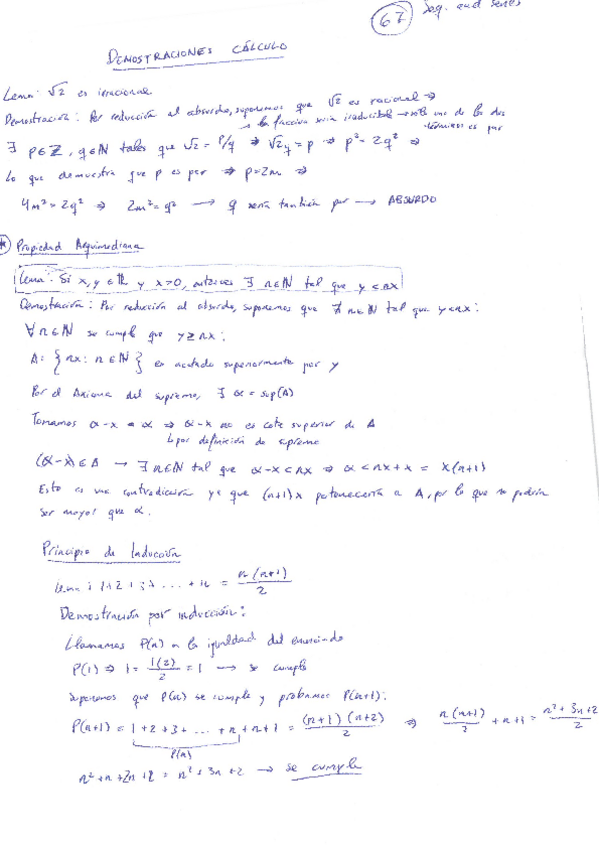 67 Seq. and series
DEMOSTRACIONES CÁLCULO
Lema: √2 es irracional
Demostración: Por reducción al absurdo, suponemos que √2 es racional ⇒
→ la fracción sería irreducible → solo uno de los dos términos es par
∃ p∈ℤ, q∈ℕ tales que √2 = p/q ⇒ √2q = p ⇒ p² = 2q² ⇒
Lo que demuestra que p es par ⇒ p=2m ⇒
4m² = 2q² ⇒ 2m² = q² → q sería también par → ABSURDO
* Propiedad Arquimediana
Lema: Si x,y ∈ ℝ y x>0, entonces ∃ n∈ℕ tal que y<nx
Demostración: Por reducción al absurdo, suponemos que ∄ n∈ℕ tal que y<nx:
∀n∈ℕ se cumple que y≥nx:
A: {nx: n∈ℕ} es acotado superiormente por y
Por el Axioma del supremo, ∃ α = sup(A)
Tomamos α-x < α ⇒ α-x no es cota superior de A
↳ por definición de supremo
(α-x) ∈ A → ∃ n∈ℕ tal que α-x<nx ⇒ α<nx+x = x(n+1)
Esto es una contradicción ya que (n+1)x pertenecería a A, por lo que no podría
ser mayor que α.
Principio de Inducción
Lema: 1+2+3+ ... +n = n(n+1)/2
Demostración por inducción:
Llamamos P(n) a la igualdad del enunciado
P(1) ⇒ 1 = 1(2)/2 = 1 → se cumple
Suponemos que P(n) se cumple y probamos P(n+1):
P(n+1) = 1+2+3+ ... +n+n+1 = (n+1)(n+2)/2 ⇒ n(n+1)/2 + n+1 = n²+3n+2/2
P(n)
n²+n+2n+2 = n²+3n+2 → se cumple